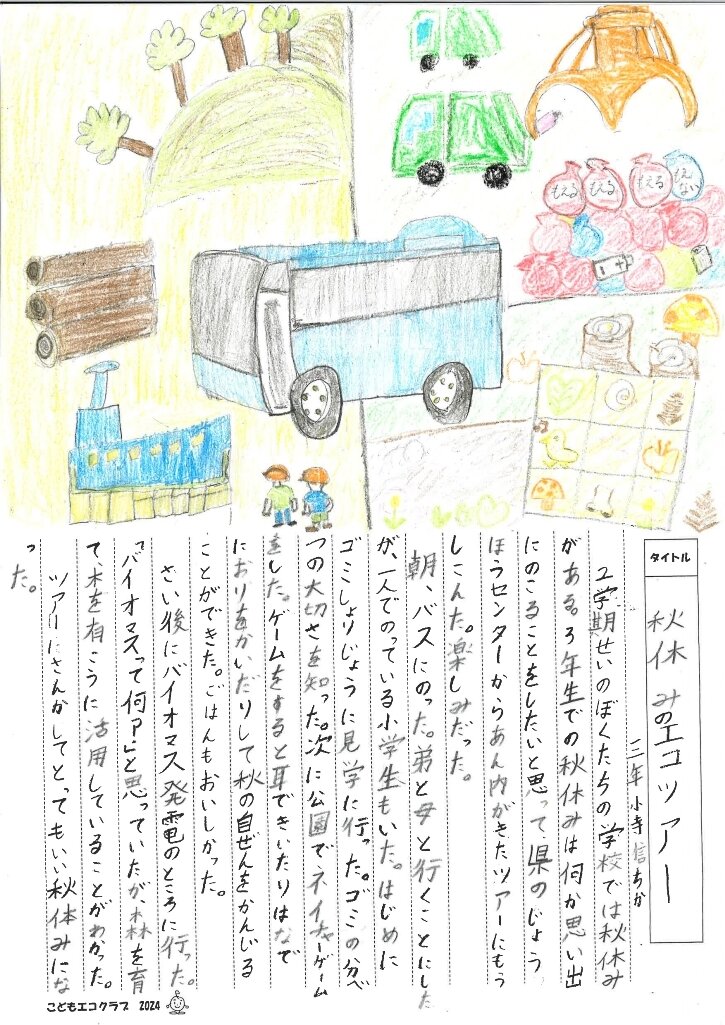 もえる
もえる
もえる
もえない
タイトル
秋休みのエコツアー
三年 小寺信ちか
2学期せいのぼくたちの学校では秋休み
がある。3年生での秋休みは何か思い出
にのこることをしたいと思って、県のじょう
ほうセンターからあん内がきたツアーにもう
しこんた。楽しみだった。
朝、バスにのった。弟と母と行くことにした
が、一人でのっている小学生もいた。はじめに
ゴミしょりじょうに見学に行った。ゴミの分べ
つの大切さを知った。次に公園でネイチャーゲーム
をした。ゲームをすると耳できいたりはなで
におりをかいだりして秋の自ぜんをかんじる
ことができた。ごはんもおいしかった。
さい後にバイオマス発電のところに行った。
「バイオマスって何?」と思っていたが、森を育
て、木を有こうに活用していることがわかった。
ツアーにさんかしてとってもいい秋休みにな
った。
こどもエコクラブ 2024